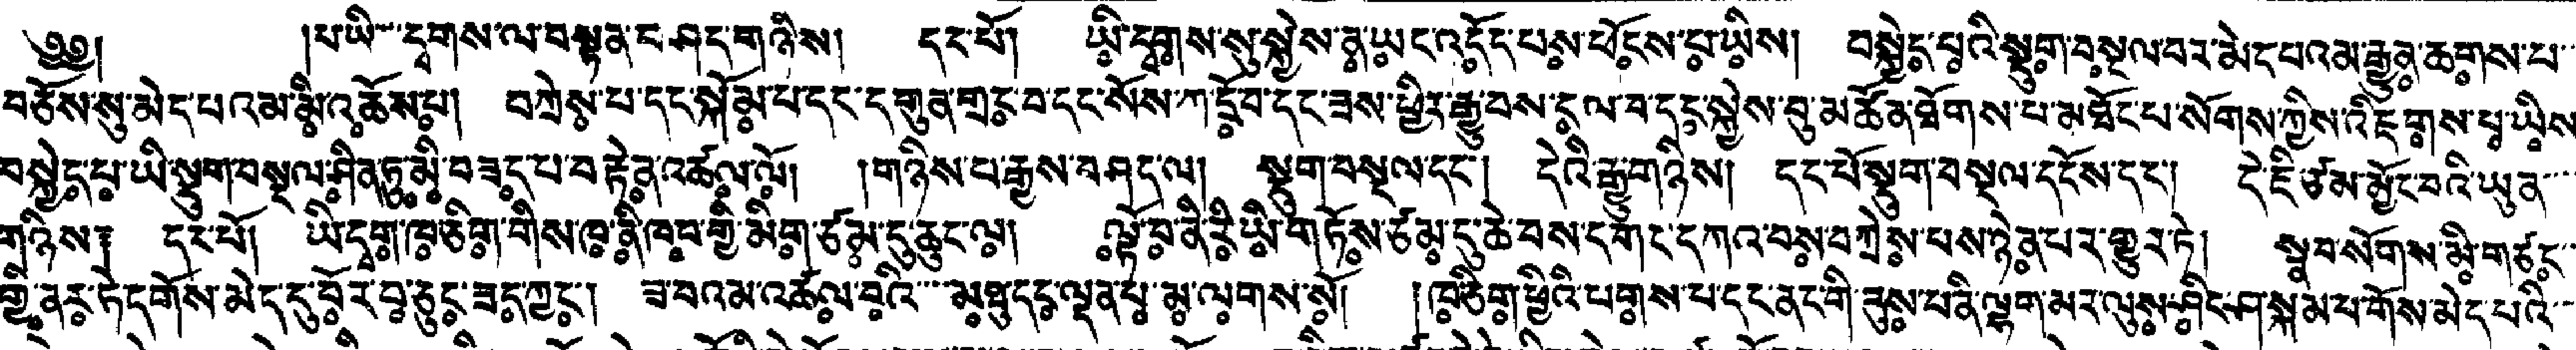 ༄༅། །པ་ཡི་དྭགས་ལ་བསྟན་ང་ཤད་གཉིས། དང་པོ། ཡི་དྭགས་སུ་སྐྱེས་ན་ཡང་འདོད་པས་ཕོངས་པ་ཡིས། བསྐྱེད་པའི་སྡུག་བསྔལ་བར་མེད་པའམ་རྒྱུན་ཆགས་པ་
བཅོས་སུ་མེད་པའམ་མི་འཆོས་པ། བཀྲེས་པ་དང་སྐོམ་པ་དང་དགུན་གྲང་བ་དང་སོས་ཀ་དྲོབ་དང་ཟས་ཕྱིར་རྒྱུ་བས་ངལ་བ་དང་སྐྱེས་བུ་མཚོན་ཐོགས་པ་མཐོང་པ་སོགས་ཀྱིས་འཇིགས་པ་ཡིས
བསྐྱེད་པ་ཡི་སྡུག་བསྔལ་ཤིན་ཏུ་མི་བཟད་པ་བརྟེན་འཚལ་ལོ། །གཉིས་པ་རྒྱས་བཤད་ལ། སྡུག་བསྔལ་དང་། དེའི་རྒྱུ་གཉིས། དང་པོ་སྡུག་བསྔལ་དངོས་དང་། དེ་ཇི་ཙམ་མྱོང་བའི་ཡུན་
གཉིས༑ དང་པོ། ཡི་དྭག་ཁ་ཅིག་གིས་ཁ་ནི་ཁབ་གྱི་མིག་ཙམ་དུ་ཆུང་ལ། ལྟོ་བ་ནི་རི་ཡི་གཏོས་ཙམ་དུ་ཆེ་བས་དགང་དཀའ་བས་བཀྲེས་པས་ཉེན་པར་གྱུར་ཏེ། སྣབ་སོགས་མི་གཙང་
གྱི་ནར་ཏེ་དགོས་མེད་དུ་བོར་བ་ཅུང་ཟད་ཀྱང་། ཟ་བའམ་འཚལ་བའི་མཐུ་དང་ལྡན་པ་མ་ལགས་སོ། །ཁ་ཅིག་ཕྱིའི་པགས་པ་དང་ནང་གི་རུས་པ་ནི་ལྷག་མར་ལུས་ཤིང་ཤ་སྐམ་པ་གོས་མེད་པའི་